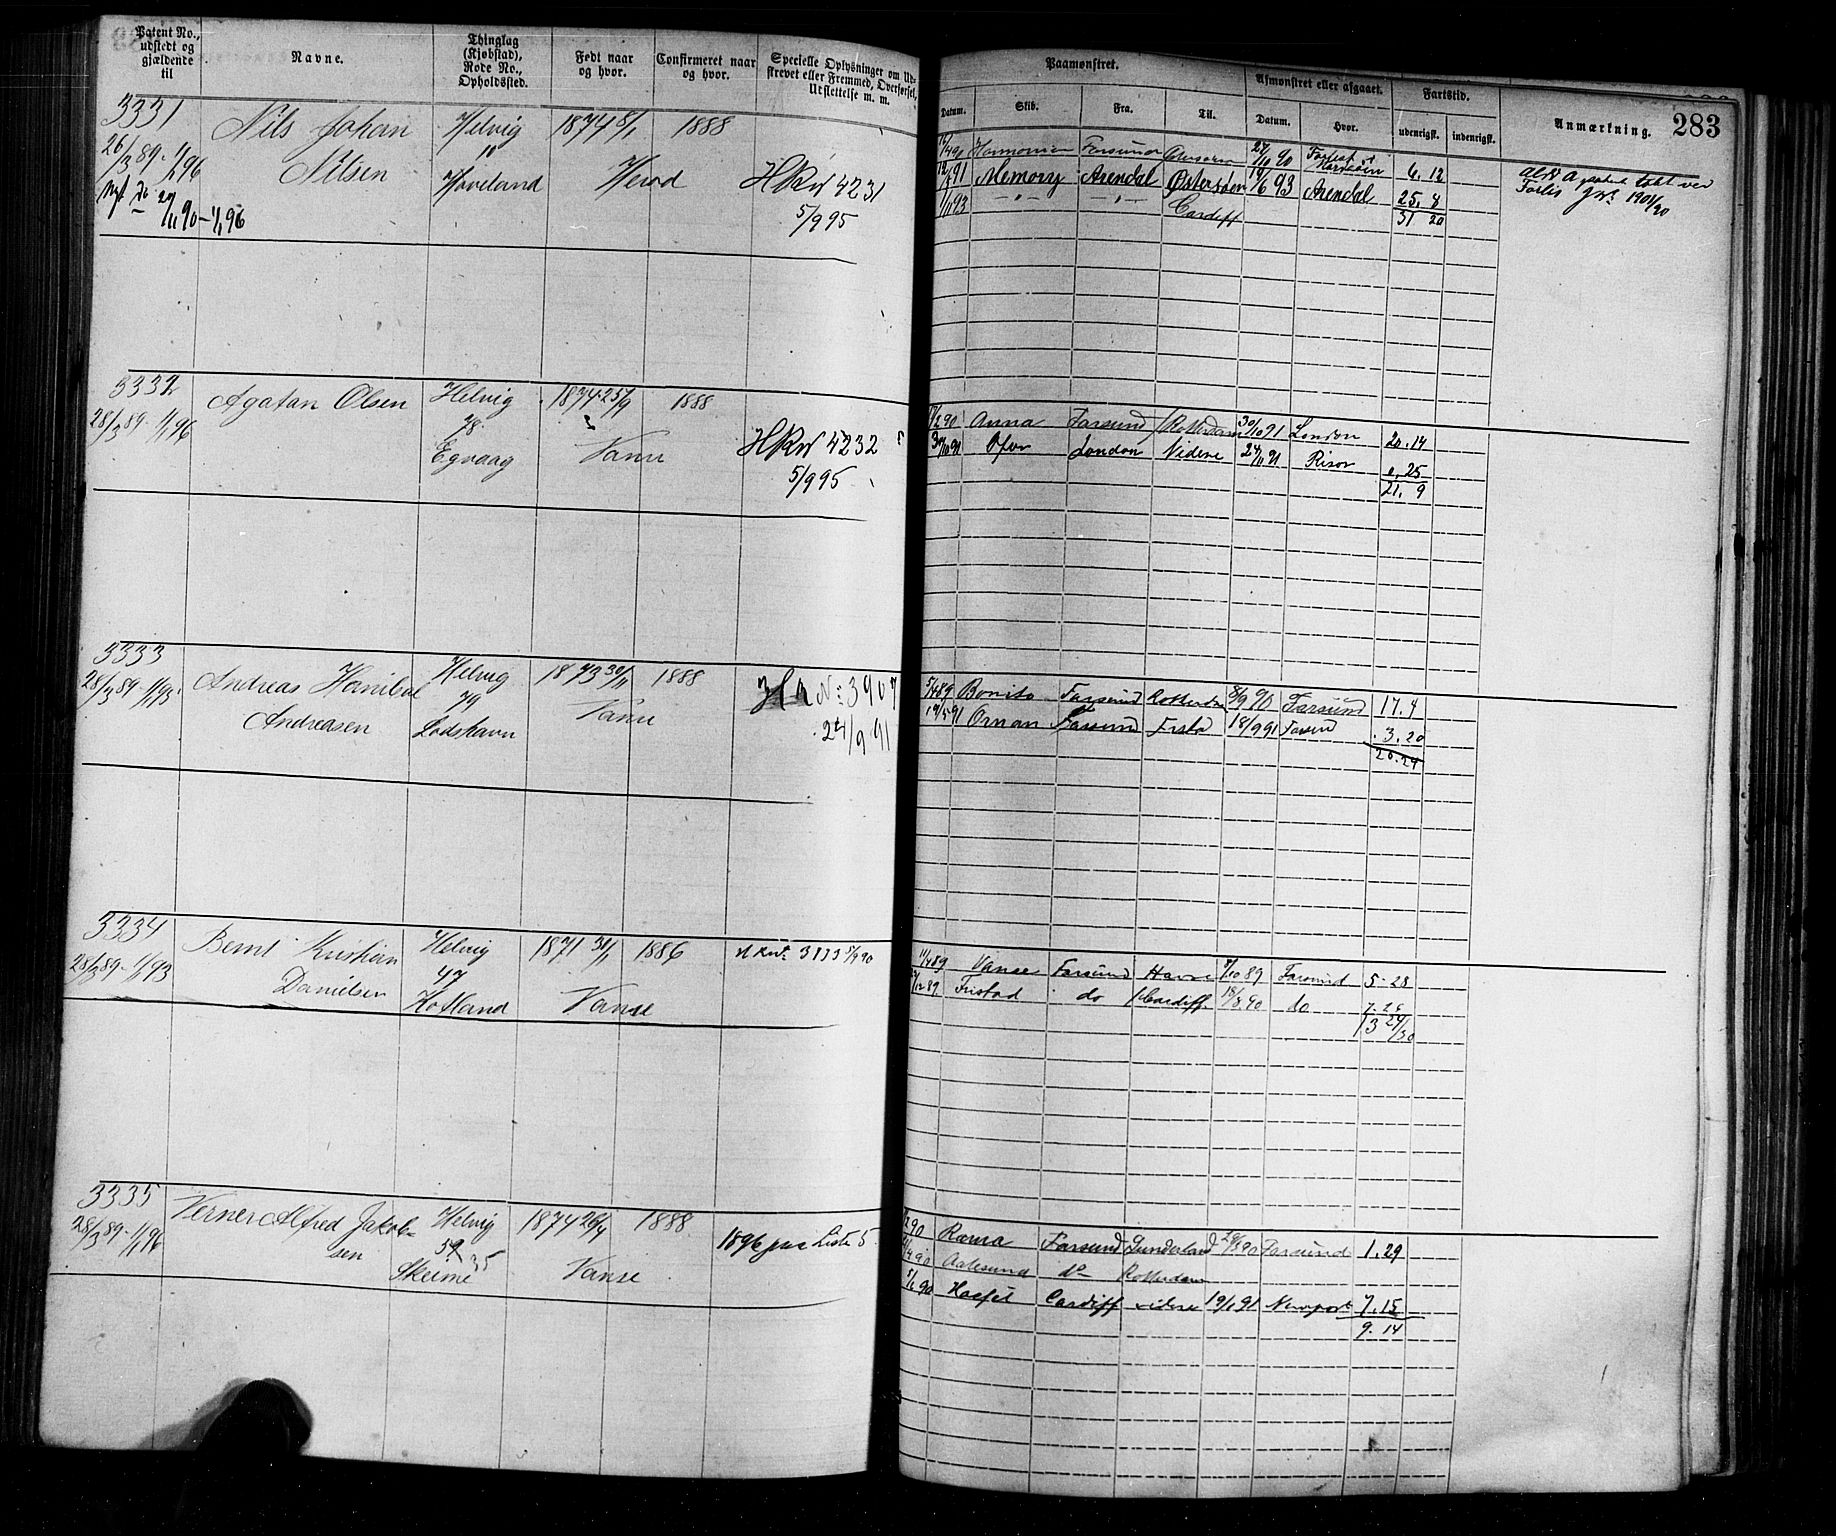 Patent No., udstedt og gjældende til
Navne.
Thinglag (Kjøbstad), Rode No., Opholdssted.
Født naar og hvor.
Confirmeret naar og hvor.
Specielle Oplysninger om Udskrevet eller Fremmed, Overførsel, Udslettelse m. m.
Paamønstret.
Afmønstret eller afgaaet.
Fartstid.
Anmærkning.
283
Datum. Skib. Fra. Til. Datum. Hvor. udenrigsk. indenrigsk.
3331 Nils Johan Helvig 1874 8/1 1888
26/3 89 - 1/1 96 Nilsen Hoveland Herod HRN 4231
29/11 90 - 1/1 96 5/9 95
Harmonien Farsund 90 6. 12
Memory Arendal Østersøen 19/6 93 Arendal 25. 8
Cardiff 31 20
3332 Agatan Olsen Helvig 1874 25/9 1888
28/3 89 - 1/1 96 78 Vanse HRN 4232
Egvaag 5/9 95
90 Anna Farsund Rotterdam 30/10 91 London 20. 14
Ofir London Videre 24/11 91 Risør 0. 25
21. 9
3333 Andreas Hanibal Helvig 1873 30/11 1888
28/3 89 - 1/1 93 Andreasen 79 Vanse No 3907
Lodshavn 24/9 91
5/4 89 Bonito Farsund Rotterdam 8/9 90 Farsund 17. 4
19/5 91 Ornan Farsund 18/9 91 Farsund 3. 20
20. 24
3334 Bernt Kristian Helvig 1871 30/1 1886
28/3 89 - 1/1 93 Danielsen 47 Vanse
Hofland
11/4 89 Vanse Farsund Havre 8/10 89 Farsund 5 - 28
12 89 Fristad do Cardiff 18/8 90 do
13 29/30
3335 Verner Alfred Jakobsen Helvig 1874 26/4 1888
28/3 89 - 1/1 96 Skeime 35 Vanse 1896 paa Liste 5
90 Rama Farsund Sunderland Farsund 1. 29
4 90 Aalesund do Rotterdam
90 Cardiff videre 19/1 91 Newport 7. 15
9. 14